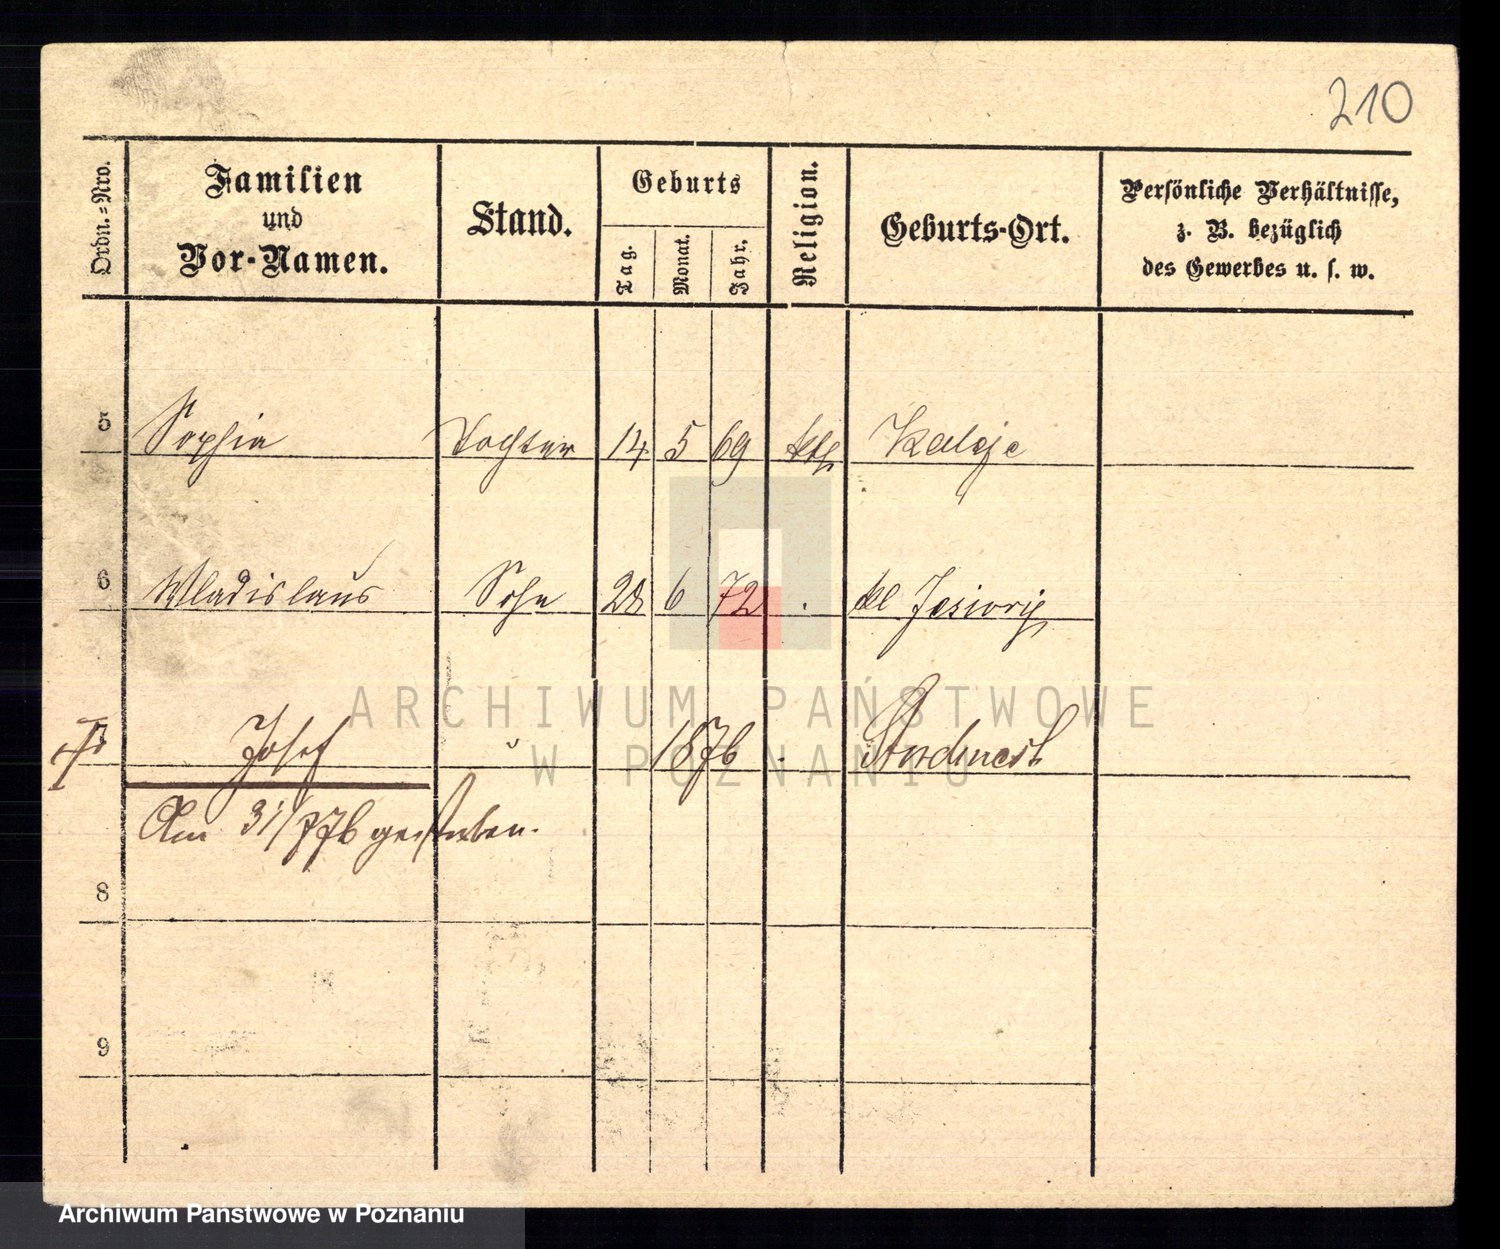 210
Ordn.-Nro.
Familien
und
Vor-Namen.
Stand.
Geburts
Tag.
Monat.
Jahr.
Religion.
Geburts-Ort.
Persönliche Verhältnisse,
z. B. bezüglich
des Gewerbes u. s. w.
5 Sophia Tochter 14 5 69 kth Kaleje
6 Wladislaus Sohn 28 6 72 . kl
7 Josef " 1876 .
Am 31/7 76 gestorben.
8
9
ARCHIWUM PAŃSTWOWE
W POZNANIU
Archiwum Państwowe w Poznaniu